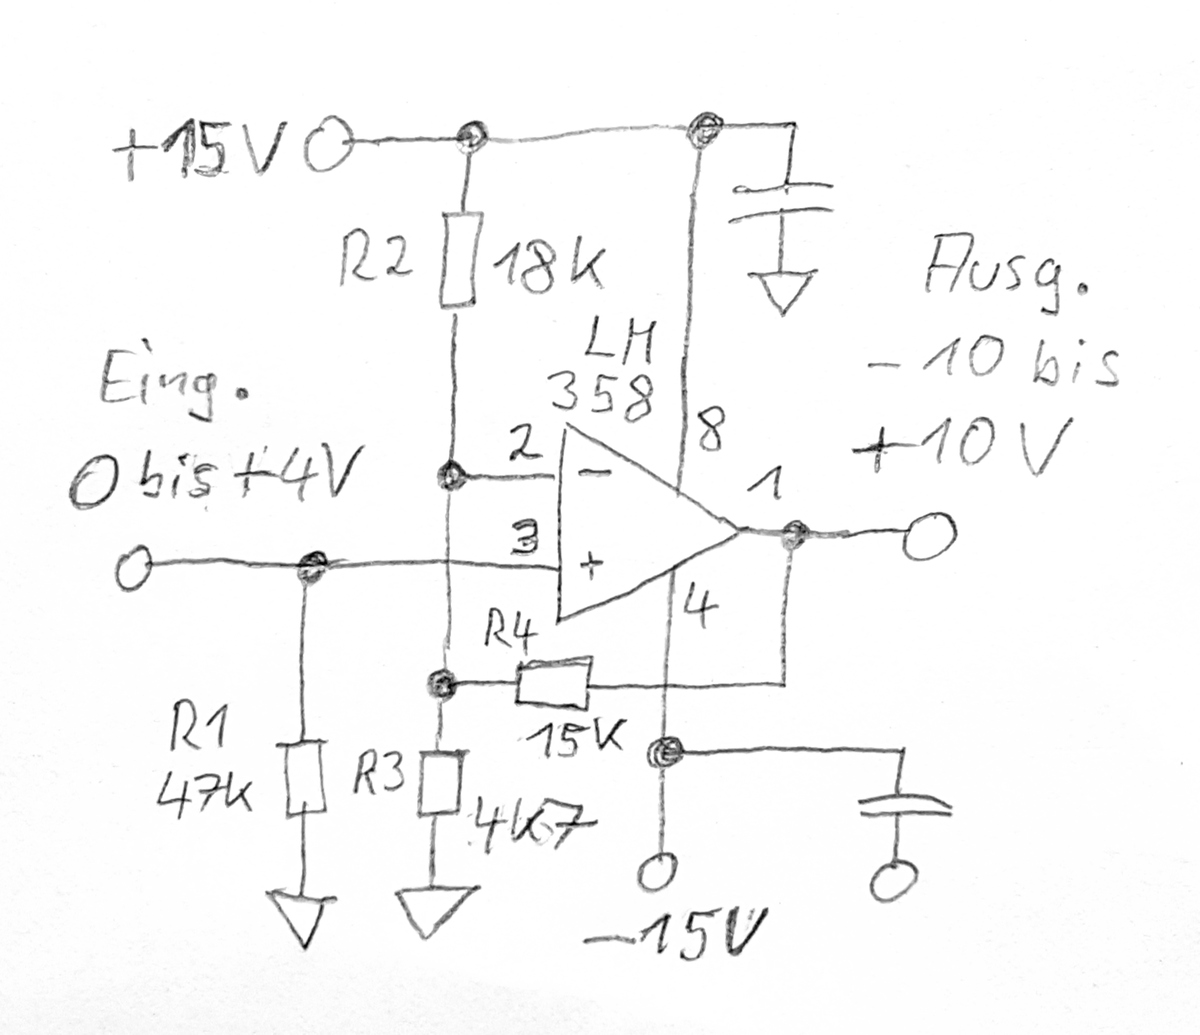 +15V
R2
18K
LM
358
Eing.
0 bis +4V
Ausg.
-10 bis
+10V
2
3
8
1
4
-
+
R4
15K
R1
47K
R3
4K7
-15V